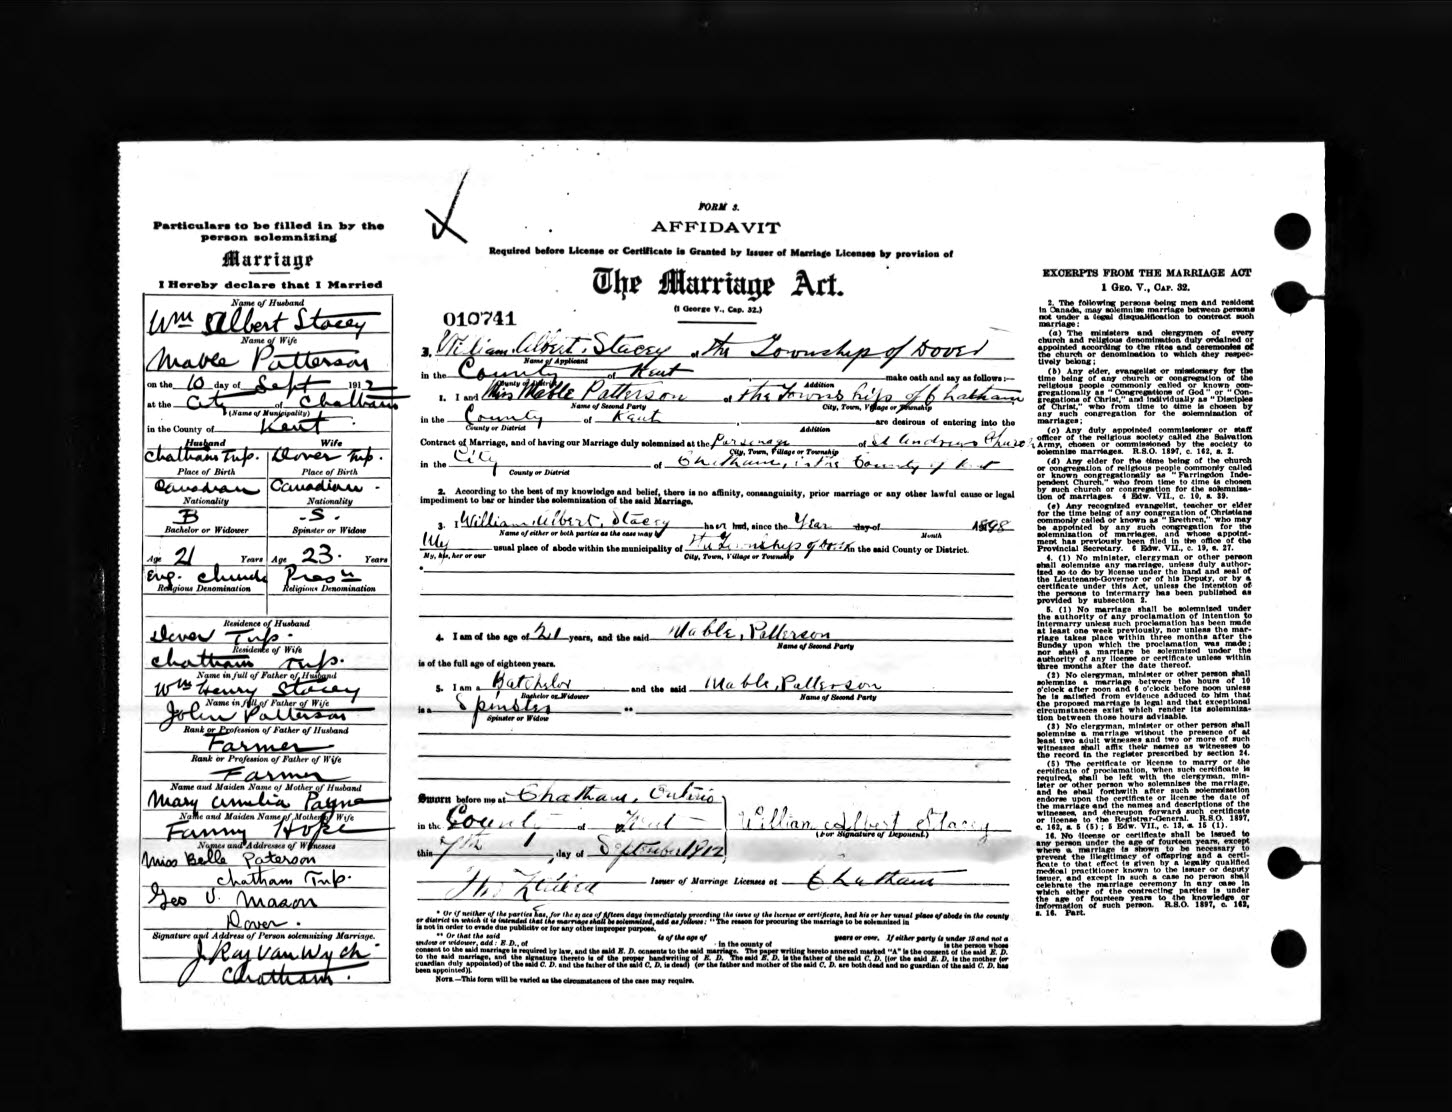 Particulars to be filled in by the
person solemnizing
Marriage
I Hereby declare that I Married
Name of Husband
Wm Albert Stacey
Name of Wife
Mable Patterson
on the 10 day of Sept 1912
at the City of Chatham
(Name of Municipality)
in the County of Kent
Husband Wife
Chatham Twp. Dover Twp.
Place of Birth Place of Birth
Canadian Canadian.
Nationality Nationality
B S.
Bachelor or Widower Spinster or Widow
Age 21 Years Age 23. Years
Eng. Church Presn
Religious Denomination Religious Denomination
Residence of Husband
Dover Twp.
Residence of Wife
Chatham Twp.
Name in full of Father of Husband
Wm Henry Stacey
Name in full of Father of Wife
John Patterson
Rank or Profession of Father of Husband
Farmer
Rank or Profession of Father of Wife
Farmer
Name and Maiden Name of Mother of Husband
Mary Amelia Payne
Name and Maiden Name of Mother of Wife
Fanny Hope
Names and Addresses of Witnesses
Miss Belle Paterson
Chatham Twp.
Geo V. Mason
Dover.
Signature and Address of Person solemnizing Marriage.
J. Ray Van Wych
Chatham.
FORM 3.
AFFIDAVIT
Required before License or Certificate is Granted by Issuer of Marriage Licenses by provision of
The Marriage Act.
(1 George V., Cap. 32.)
010741
William Albert Stacey of the Township of Dover
Name of Applicant
in the County of Kent make oath and say as follows:—
County or District Addition
1. I and Miss Mable Patterson of the Township of Chatham
Name of Second Party City, Town, Village or Township
in the County of Kent are desirous of entering into the
County or District Addition
Contract of Marriage, and of having our Marriage duly solemnized at the Parsonage of St Andrews Church
City, Town, Village or Township
in the City of Chatham, in the County of Kent
County or District
2. According to the best of my knowledge and belief, there is no affinity, consanguinity, prior marriage or any other lawful cause or legal
impediment to bar or hinder the solemnization of the said Marriage.
3. I William Albert, Stacey ha had, since the Year day of 1898
Name of either or both parties as the case may be Month
My usual place of abode within the municipality of the Township of Dover in the said County or District.
My, his, her or our City, Town, Village or Township
4. I am of the age of 21 years, and the said Mable, Patterson
Name of Second Party
is of the full age of eighteen years.
5. I am a Batchelor and the said Mable, Patterson
Bachelor or Widower Name of Second Party
is a Spinster
Spinster or Widow
Sworn before me at Chatham, Ontario
in the County of Kent William Albert Stacey
(For Signature of Deponent.)
this 7th day of September 1912
Issuer of Marriage Licenses at Chatham
* Or if neither of the parties has, for the space of fifteen days immediately preceding the issue of the license or certificate, had his or her usual place of abode in the county
or district in which it is intended that the marriage shall be solemnized, add as follows: "The reason for procuring the marriage to be solemnized in
is not in order to evade due publicity or for any other improper purpose.
** Or that the said is of the age of years or over. If either party is under 18 and not a
widow or widower, add: E. D., of in the county of is the person whose
consent to the said marriage is required by law, and the said E. D. consents to the said marriage. The paper writing hereto annexed marked "A" is the consent of the said E. D.
to the said marriage, and the signature thereto is of the proper handwriting of E. D. The said E. D. is the father of the said C. D. [(or the said E. D. is the mother (or
guardian duly appointed) of the said C. D. and the father of the said C. D. is dead) (or the father and mother of the said C. D. are both dead and no guardian of the said C. D. has
been appointed)].
NOTE.—This form will be varied as the circumstances of the case may require.
EXCERPTS FROM THE MARRIAGE ACT
1 GEO. V., CAP. 32.
2. The following persons being men and resident
in Canada, may solemnize marriage between persons
not under a legal disqualification to contract such
marriage;
(a) The ministers and clergymen of every
church and religious denomination duly ordained or
appointed according to the rites and ceremonies of
the church or denomination to which they respec-
tively belong;
(b) Any elder, evangelist or missionary for the
time being of any church or congregation of the
religious people commonly called or known con-
gregationally as "Congregations of God" or "Con-
gregations of Christ," and individually as "Disciples
of Christ," who from time to time is chosen by
any such congregation for the solemnization of
marriages;
(c) Any duly appointed commissioner or staff
officer of the religious society called the Salvation
Army, chosen or commissioned by the society to
solemnize marriages. R.S.O. 1897, c. 162, s. 2.
(d) Any elder for the time being of the church
or congregation of religious people commonly called
or known congregationally as "Farringdon Inde-
pendent Church," who from time to time is chosen
by such church or congregation for the solemniza-
tion of marriages. 4 Edw. VII., c. 10, s. 39.
(e) Any recognized evangelist, teacher or elder
for the time being of any congregation of Christians
commonly called or known as "Brethren," who may
be appointed by any such congregation for the
solemnization of marriages, and whose appoint-
ment has previously been filed in the office of the
Provincial Secretary. 6 Edw. VII., c. 19, s. 27.
4. (1) No minister, clergyman or other person
shall solemnize any marriage, unless duly author-
ized so to do by license under the hand and seal of
the Lieutenant-Governor or of his Deputy, or by a
certificate under this Act, unless the intention of
the persons to intermarry has been published as
provided by subsection 2.
5. (1) No marriage shall be solemnized under
the authority of any proclamation of intention to
intermarry unless such proclamation has been made
at least one week previously, nor unless the mar-
riage takes place within three months after the
Sunday upon which the proclamation was made;
nor shall a marriage be solemnized under the
authority of any license or certificate unless within
three months after the date thereof.
(2) No clergyman, minister or other person shall
solemnize a marriage between the hours of 10
o'clock after noon and 6 o'clock before noon unless
he is satisfied from evidence adduced to him that
the proposed marriage is legal and that exceptional
circumstances exist which render its solemniza-
tion between those hours advisable.
(3) No clergyman, minister or other person shall
solemnize a marriage without the presence of at
least two adult witnesses and two or more of such
witnesses shall affix their names as witnesses to
the record in the register prescribed by section 24.
(5) The certificate or license to marry or the
certificate of proclamation, when such certificate is
required, shall be left with the clergyman, min-
ister or other person who solemnizes the marriage,
and he shall forthwith after such solemnization
endorse upon the certificate or license the date of
the marriage and the names and descriptions of the
witnesses, and thereupon forward such certificate
or license to the Registrar-General. R.S.O. 1897,
c. 162, s. 5 (5); 5 Edw. VII., c. 13, s. 15 (1).
16. No license or certificate shall be issued to
any person under the age of fourteen years, except
where a marriage is shown to be necessary to
prevent the illegitimacy of offspring and a certi-
ficate to that effect is given by a legally qualified
medical practitioner known to the issuer or deputy
issuer, and except in such a case no person shall
celebrate the marriage ceremony in any case in
which either of the contracting parties is under
the age of fourteen years to the knowledge or
information of such person. R.S.O. 1897, c. 162,
s. 16. Part.